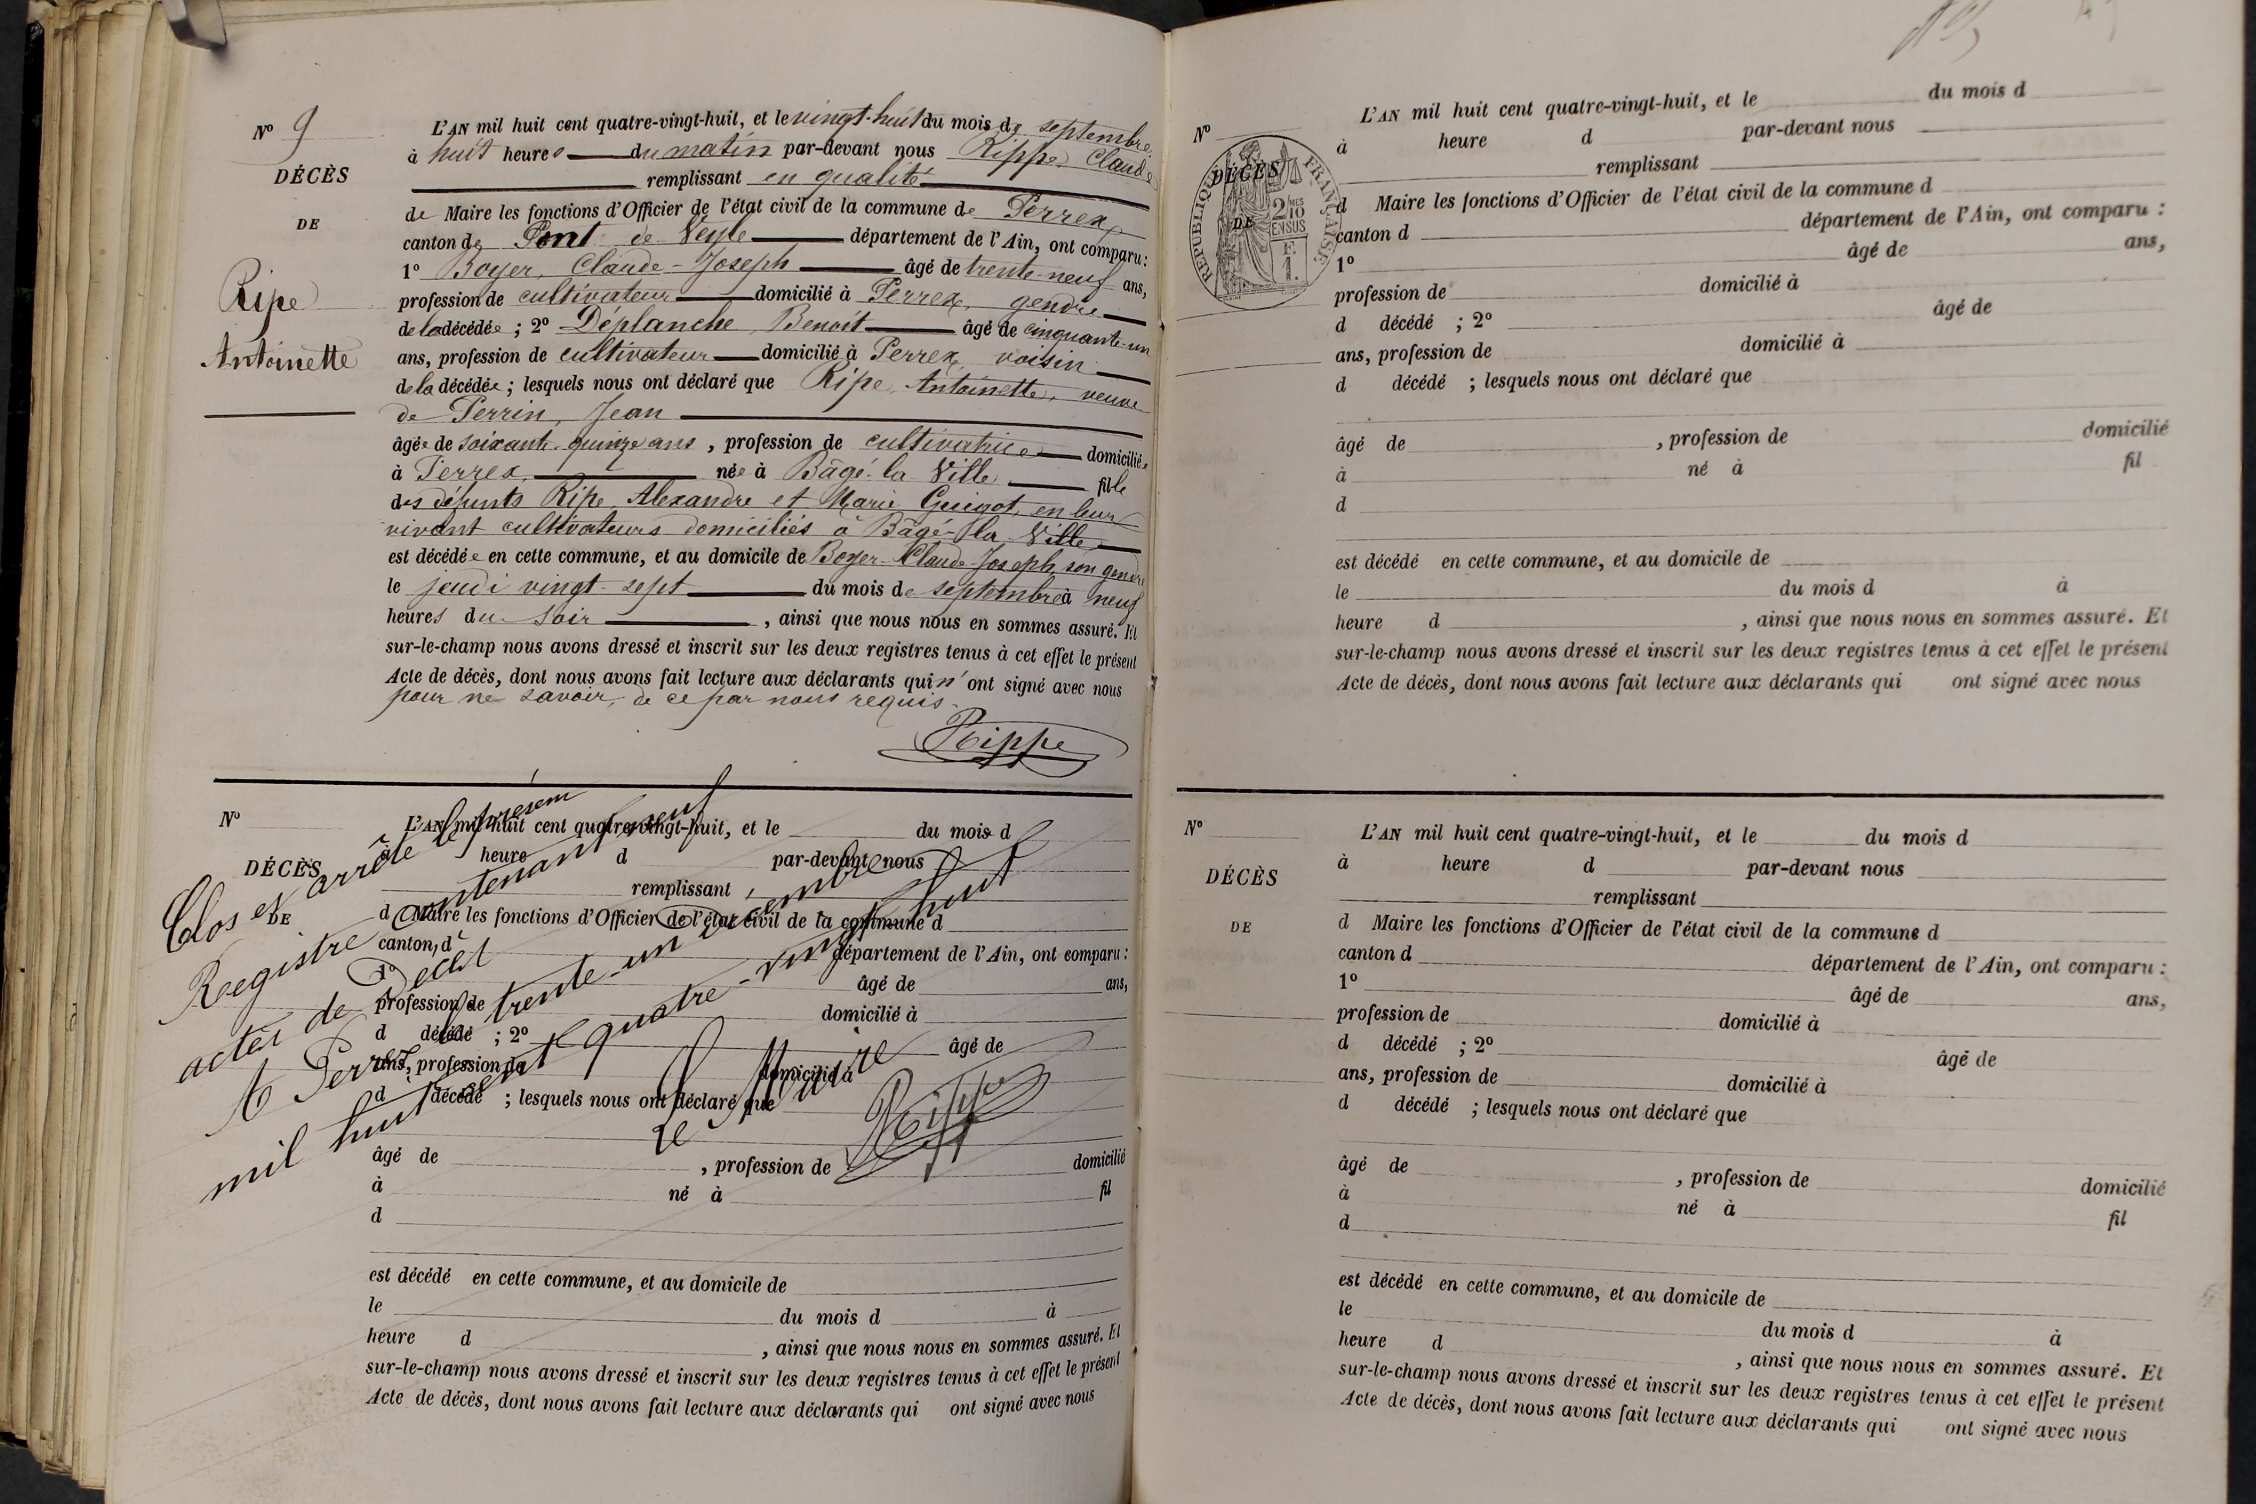 N° 9
DÉCÈS
DE
Ripe
Antoinette
L'AN mil huit cent quatre-vingt-huit, et le vingt-huit du mois de septembre
à huit heures du matin par-devant nous Rippe Claude
remplissant en qualité
de Maire les fonctions d'Officier de l'état civil de la commune de Perrex
canton de Pont de Veyle département de l'Ain, ont comparu :
1° Boyer, Claude-Joseph âgé de trente-neuf ans,
profession de cultivateur domicilié à Perrex, gendre
de la décédée ; 2° Déplanche Benoit âgé de cinquante-un
ans, profession de cultivateur domicilié à Perrex, voisin
de la décédée ; lesquels nous ont déclaré que Ripe, Antoinette, veuve
de Perrin, Jean
âgée de soixante-quinze ans, profession de cultivatrice domiciliée
à Perrex, née à Bâgé-la-Ville fille
des défunts Ripe Alexandre et Marie Guigot, en leur
vivant cultivateurs domiciliés à Bâgé-la-Ville
est décédée en cette commune, et au domicile de Boyer Claude-Joseph, son gendre
le jeudi vingt-sept du mois de septembre à neuf
heures du soir, ainsi que nous nous en sommes assuré. Et
sur-le-champ nous avons dressé et inscrit sur les deux registres tenus à cet effet le présent
Acte de décès, dont nous avons fait lecture aux déclarants qui n'ont signé avec nous
pour ne savoir, de ce par nous requis.
Rippe
N°
DÉCÈS
DE
L'AN mil huit cent quatre-vingt-huit, et le du mois d
à heure d par-devant nous
remplissant
d Maire les fonctions d'Officier de l'état civil de la commune d
canton d département de l'Ain, ont comparu :
1° âgé de ans,
profession de domicilié à
d décédé ; 2° âgé de
ans, profession de domicilié à
d décédé ; lesquels nous ont déclaré que
âgé de , profession de domicilié
à né à fil
d
est décédé en cette commune, et au domicile de
le du mois d à
heure d , ainsi que nous nous en sommes assuré. Et
sur-le-champ nous avons dressé et inscrit sur les deux registres tenus à cet effet le présent
Acte de décès, dont nous avons fait lecture aux déclarants qui ont signé avec nous
Clos et arrêté le présent
Registre contenant neuf
actes de Décès
A Perrex le trente-un Décembre
mil huit cent quatre-vingt huit
Le Maire
Rippe
N°
DÉCÈS
DE
RÉPUBLIQUE FRANÇAISE
2 10MES
EN SUS
F.
1.
L'AN mil huit cent quatre-vingt-huit, et le du mois d
à heure d par-devant nous
remplissant
d Maire les fonctions d'Officier de l'état civil de la commune d
canton d département de l'Ain, ont comparu :
1° âgé de ans,
profession de domicilié à
d décédé ; 2° âgé de
ans, profession de domicilié à
d décédé ; lesquels nous ont déclaré que
âgé de , profession de domicilié
à né à fil
d
est décédé en cette commune, et au domicile de
le du mois d à
heure d , ainsi que nous nous en sommes assuré. Et
sur-le-champ nous avons dressé et inscrit sur les deux registres tenus à cet effet le présent
Acte de décès, dont nous avons fait lecture aux déclarants qui ont signé avec nous
N°
DÉCÈS
DE
L'AN mil huit cent quatre-vingt-huit, et le du mois d
à heure d par-devant nous
remplissant
d Maire les fonctions d'Officier de l'état civil de la commune d
canton d département de l'Ain, ont comparu :
1° âgé de ans,
profession de domicilié à
d décédé ; 2° âgé de
ans, profession de domicilié à
d décédé ; lesquels nous ont déclaré que
âgé de , profession de domicilié
à né à fil
d
est décédé en cette commune, et au domicile de
le du mois d à
heure d , ainsi que nous nous en sommes assuré. Et
sur-le-champ nous avons dressé et inscrit sur les deux registres tenus à cet effet le présent
Acte de décès, dont nous avons fait lecture aux déclarants qui ont signé avec nous